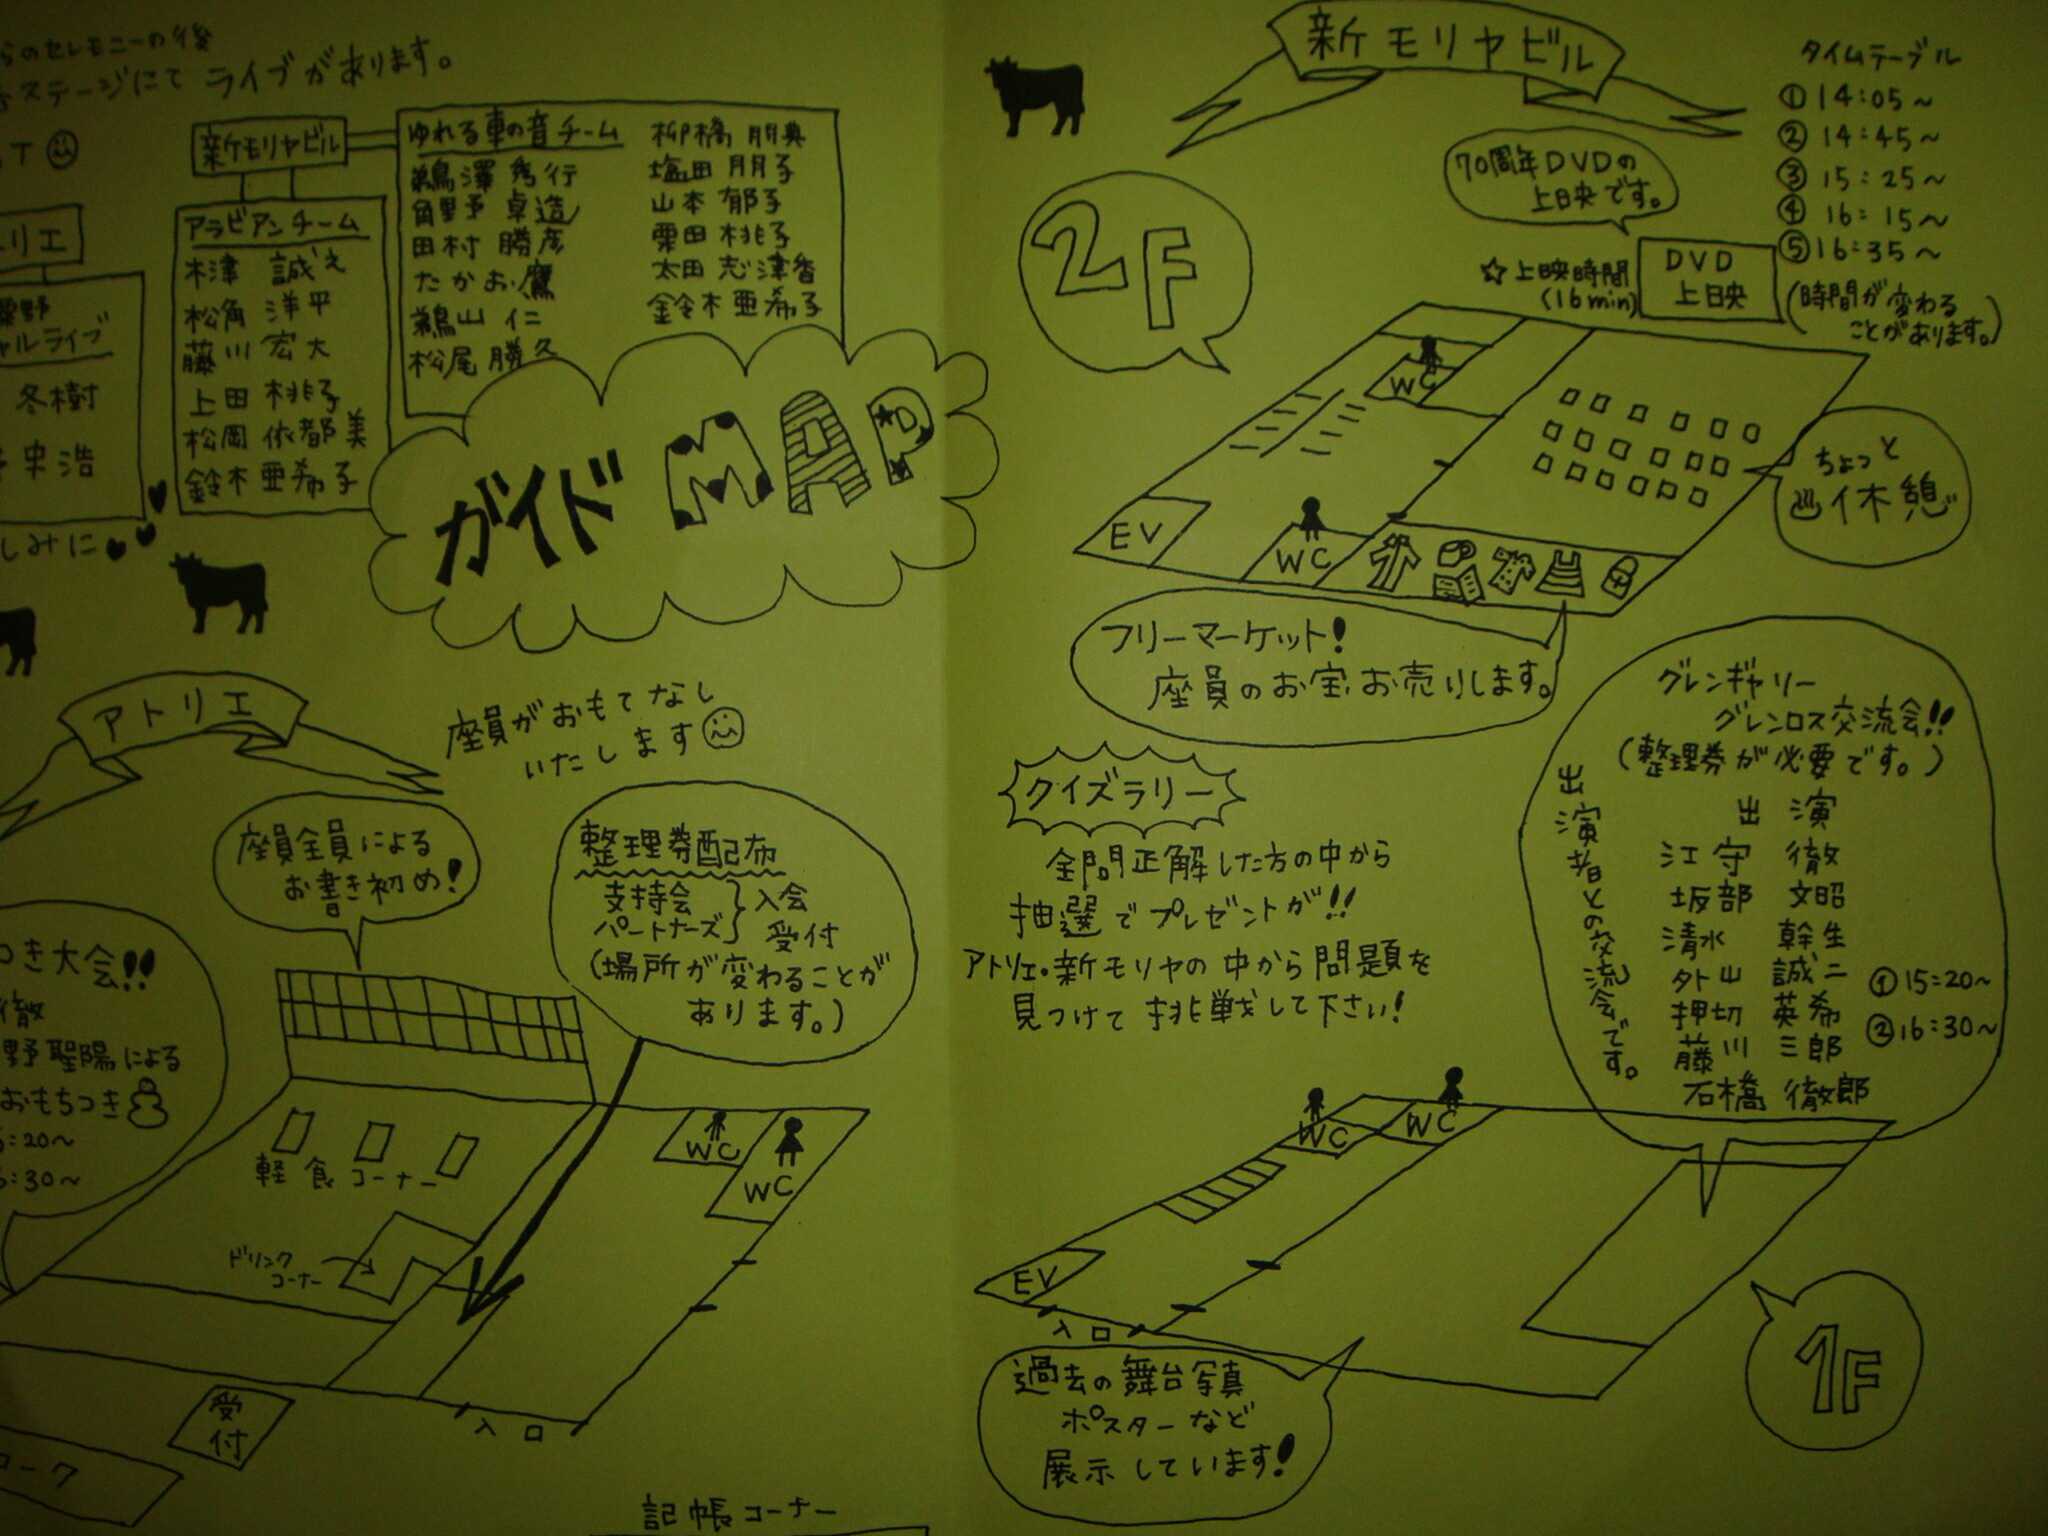 らのセレモニーの後
ステージにて ライブがあります。
新モリヤビル
ゆれる車の音チーム
鵜澤 秀行
角野 卓造
田村 勝彦
たかお 鷹
鵜山 仁
松尾 勝久
柳橋 朋典
塩田 朋子
山本 郁子
栗田 桃子
太田 志津香
鈴木 亜希子
アラビアンチーム
木津 誠之
松角 洋平
藤川 宏大
上田 桃子
松岡 依都美
鈴木 亜希子
リエ
ャルライブ
冬樹
忠浩
しみに
ガイド MAP
アトリエ
座員がおもてなし
いたします
座員全員による
お書き初め!
整理券配布
支持会
パートナーズ
入会
受付
(場所が変わることが
あります。)
つき大会!!
徹
野 聖陽による
おもちつき
:20~
:30~
軽食コーナー
ドリンク
コーナー
WC
WC
入口
受付
ローク
記帳コーナー
新モリヤビル
タイムテーブル
① 14:05~
② 14:45~
③ 15:25~
④ 16:15~
⑤ 16:35~
(時間が変わる
ことがあります。)
2F
70周年DVDの
上映です。
☆上映時間
(16min)
DVD
上映
WC
EV
WC
ちょっと
休憩
フリーマーケット!
座員のお宝、お売りします。
クイズラリー
全問正解した方の中から
抽選でプレゼントが!!
アトリエ・新モリヤの中から問題を
見つけて挑戦して下さい!
グレンギャリー
グレンロス交流会!!
(整理券が必要です。)
出演者との交流会です。
出演
江守 徹
坂部 文昭
清水 幹生
外山 誠二
押切 英希
藤川 三郎
石橋 徹郎
① 15:20~
② 16:30~
WC
WC
EV
入口
1F
過去の舞台写真
ポスターなど
展示しています!